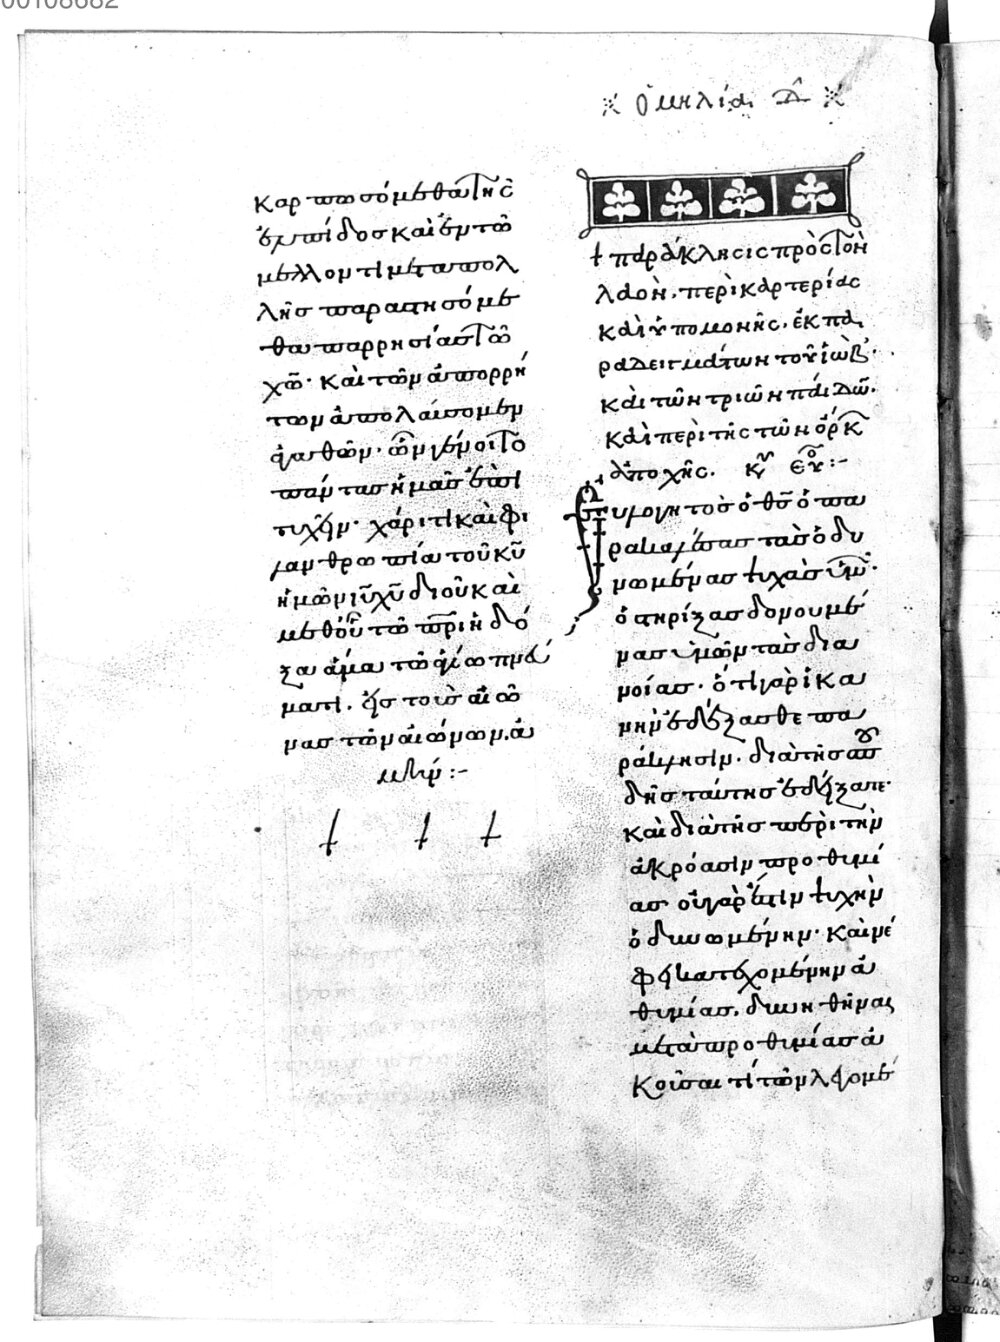 00108682
ὁμηλία Δ
καρπωσόμεθα τῆς
ἐλπίδος καὶ ἐν τῶ
μέλλοντι μετὰ πολ
λῆς παραστησόμε
θα παρρησίας τῶ
χῶ· καὶ τῶν ἀπορρή
των ἀπολαύσομεν
ἀγαθῶν· ὧν γένοιτο
πάντας ἡμᾶς ἐπι
τυχεῖν· χάριτι καὶ φι
λανθρωπία τοῦ κῦ
ἡμῶν ιῦ χῦ δι οὗ καὶ
μεθ οὗ τῶ πρὶ ἡ δό
ξα ἅμα τῶ ἁγίω πνεύ
ματι. εἰς τοὺς αἰῶ
νας τῶν αἰώνων. ἀ
μήν :-
παράκλησις πρὸς τὸν
λαὸν· περὶ καρτερίας
καὶ ὑπομονῆς· ἐκ πα
ραδειγμάτων τοῦ ἰὼβ·
καὶ τῶν τριῶν παίδω̅·
καὶ περὶ τῆς τῶν ὅρκ
ἀποχῆς.
Εὐλογητὸς ὁ θς ὁ πα
ρακαλέσας τὰς ὀδυ
νωμένας ψυχὰς ὑμῶν·
ὁ στηρίξας δονουμέ
νας ὑμῶν τὰς δια
νοίας· ὅτι γὰρ ἱκα
νὴν ἐδέξασθε πα
ράκλησιν· διὰ τῆς σπου
δῆς ταύτης ἐδείξατε·
καὶ διὰ τῆς περὶ τὴν
ἀκρόασιν προθυμί
ας οὐ γὰρ ἔστιν ψυχὴν
ὀδυνωμένην· καὶ νέ
φει κατεχομένην ἀ
θυμίας. δυνηθῆναι
μετὰ προθυμίας ἀ
κοῦσαί τι τῶν λεγομέ